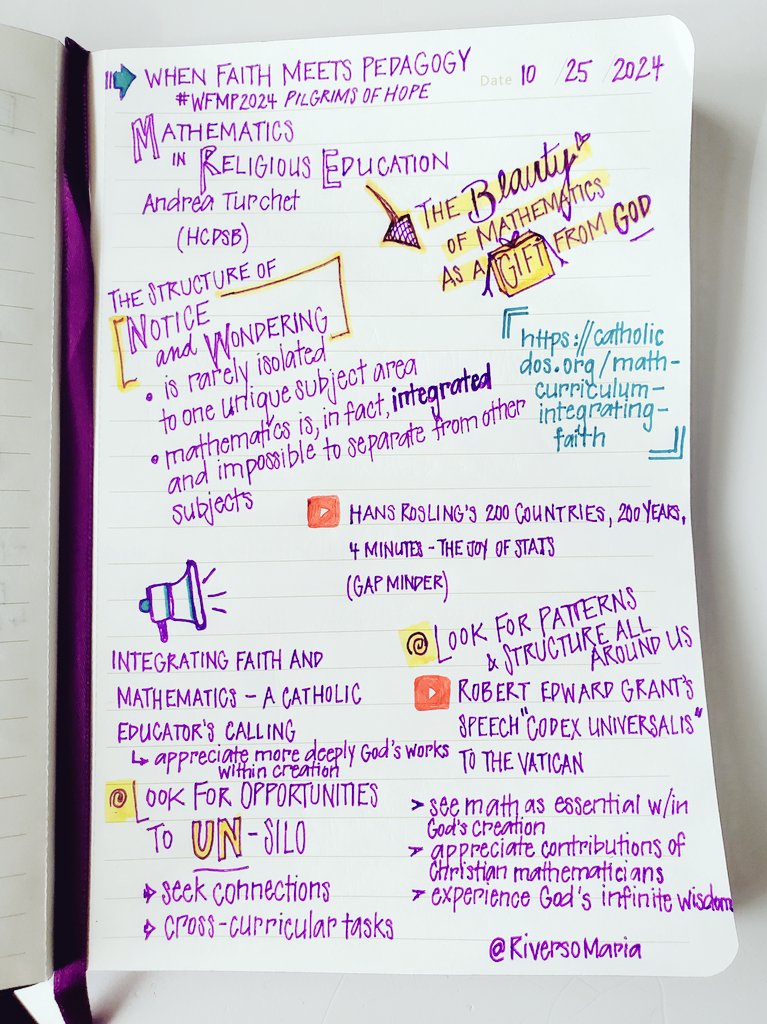 WHEN FAITH MEETS PEDAGOGY
Date 10 / 25 / 2024
#WFMP2024 PILGRIMS OF HOPE
MATHEMATICS
IN RELIGIOUS EDUCATION
Andrea Turchet
(HCDSB)
THE Beauty
OF MATHEMATICS
AS A GIFT FROM GOD
THE STRUCTURE OF
[NOTICE
and WONDERING]
• is rarely isolated
to one unique subject area
• mathematics is, in fact, integrated
and impossible to separate from other
subjects
https://catholic
dos.org/math-
curriculum-
integrating-
faith
HANS ROSLING'S 200 COUNTRIES, 200 YEARS,
4 MINUTES - THE JOY OF STATS
(GAP MINDER)
INTEGRATING FAITH AND
MATHEMATICS - A CATHOLIC
EDUCATOR'S CALLING
↳ appreciate more deeply God's works
within creation
LOOK FOR OPPORTUNITIES
TO UN-SILO
seek connections
cross-curricular tasks
LOOK FOR PATTERNS
& STRUCTURE ALL
AROUND US
ROBERT EDWARD GRANT'S
SPEECH "CODEX UNIVERSALIS"
TO THE VATICAN
➤ see math as essential w/in
God's creation
➤ appreciate contributions of
Christian mathematicians
➤ experience God's infinite wisdom
@RiversoMaria